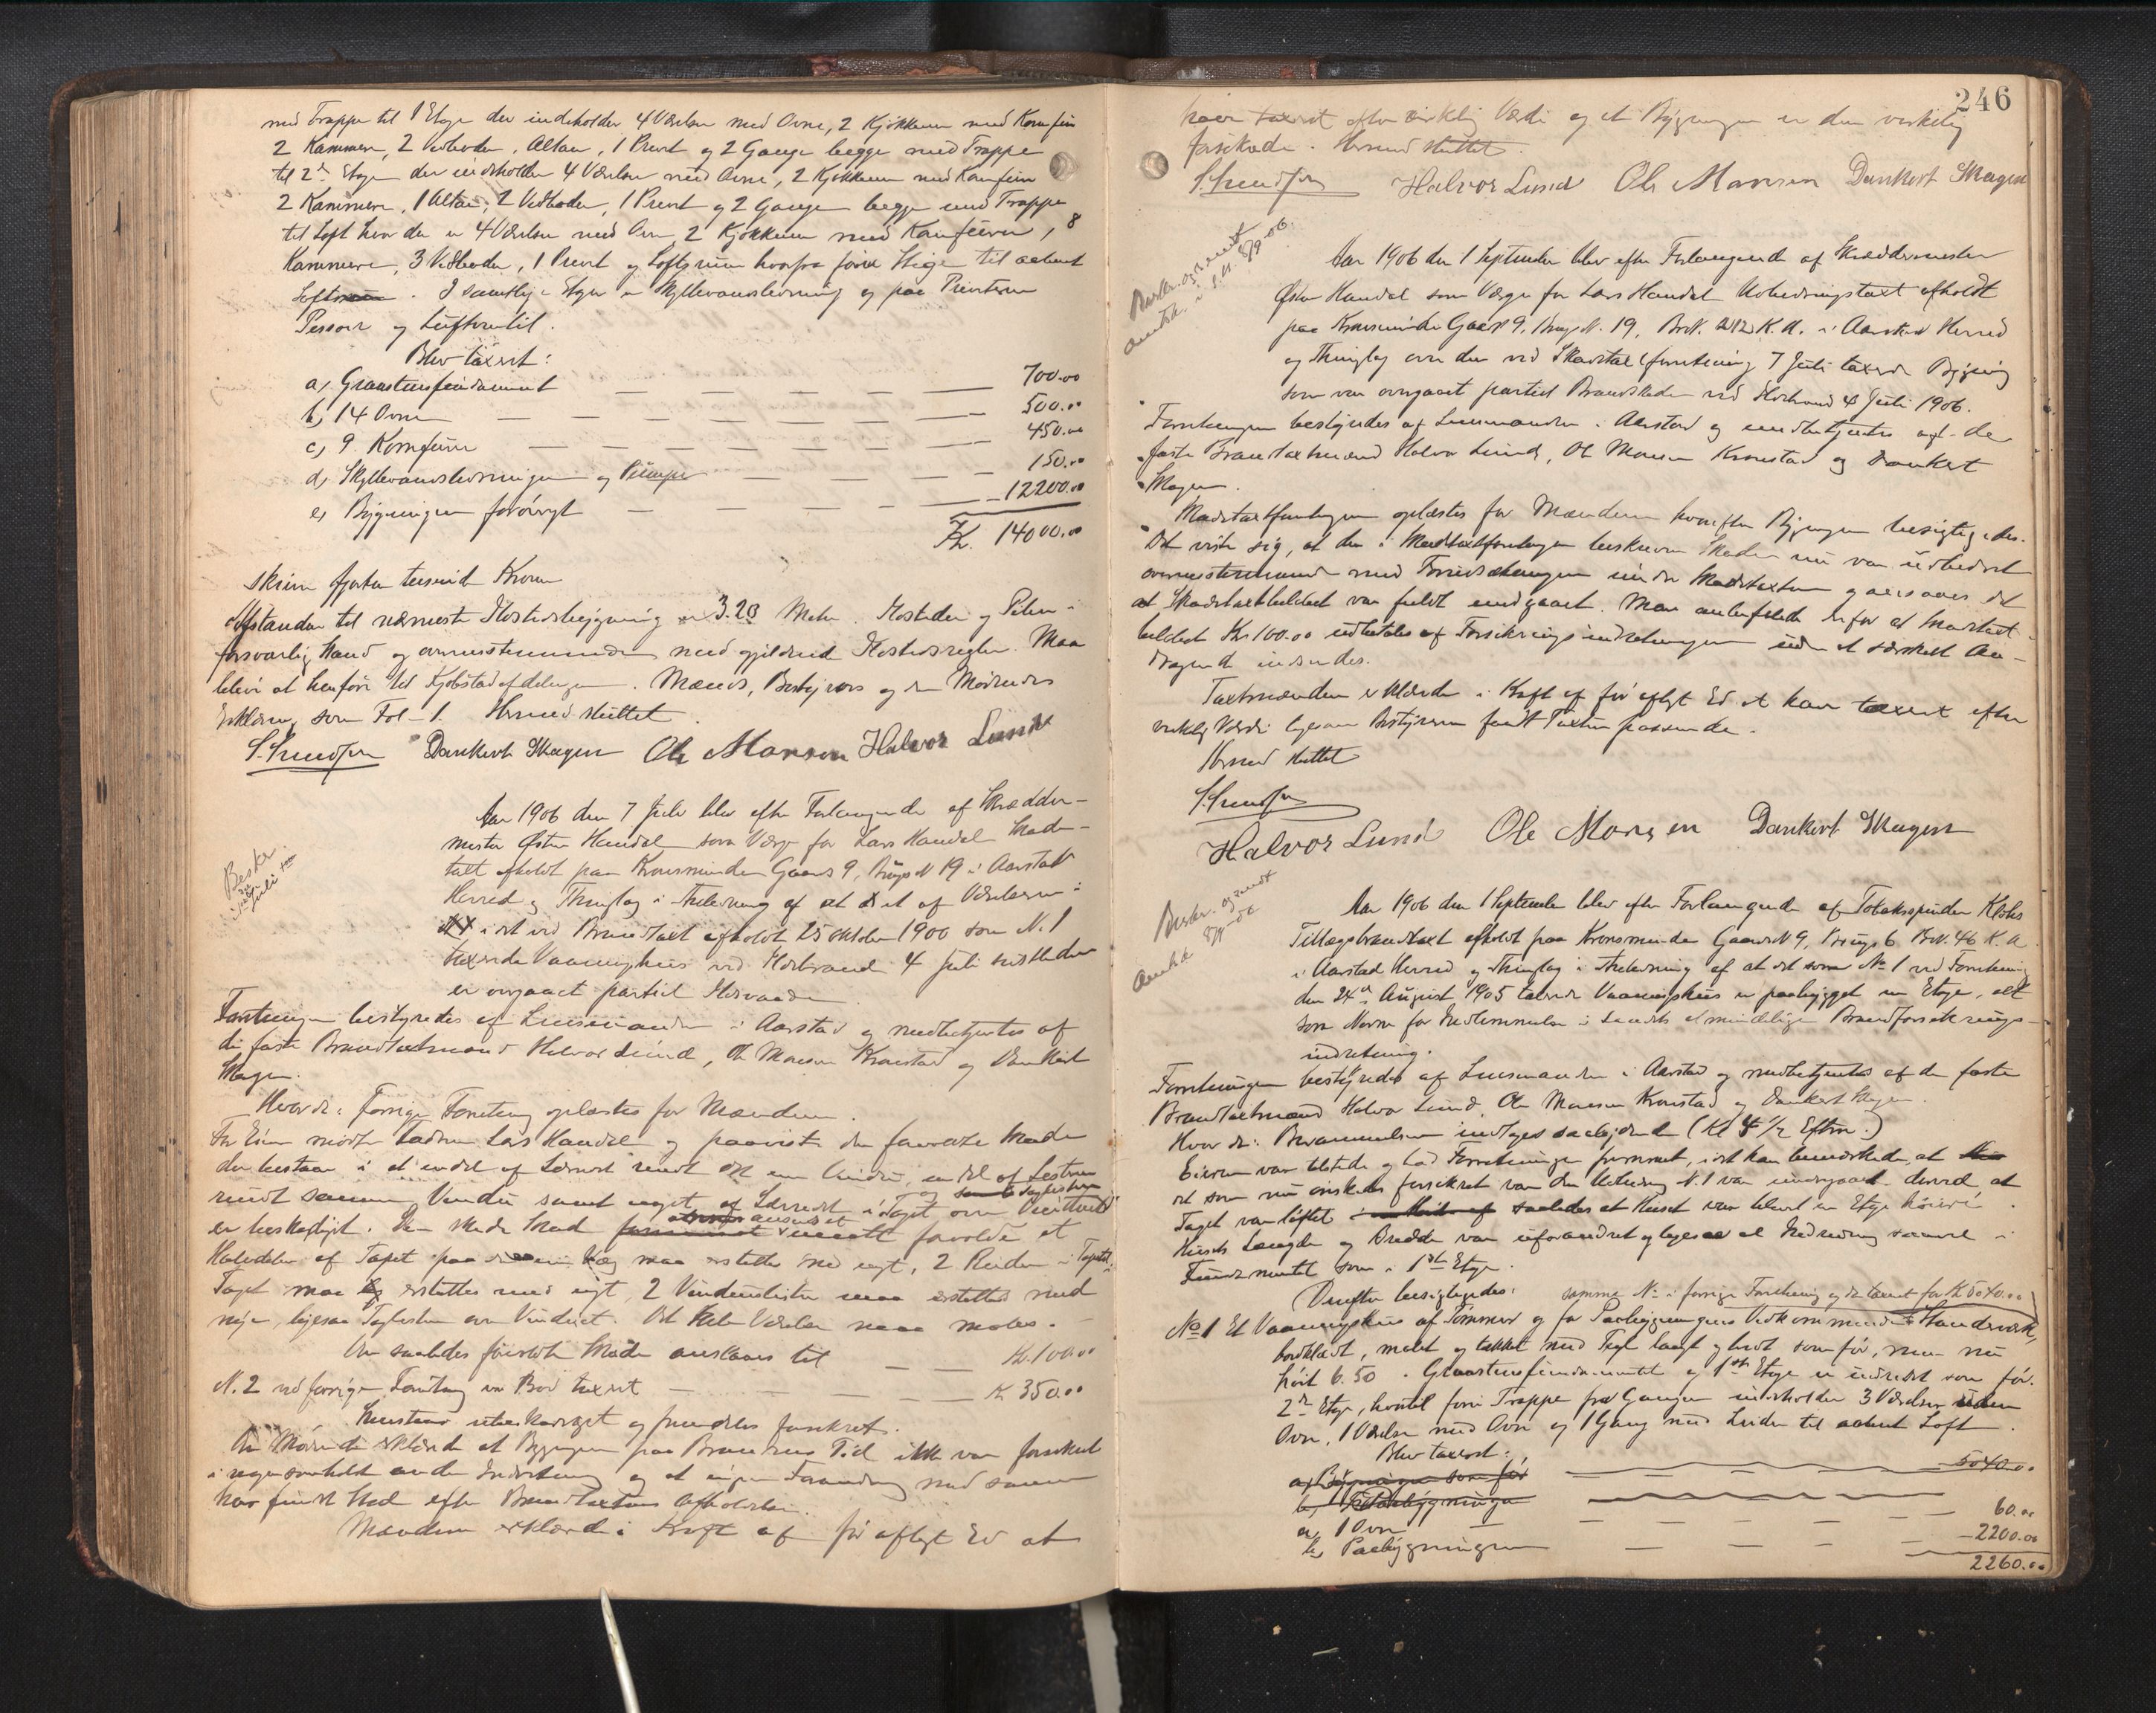 med Trappe til 1 Etage der indeholder 4 Værelser med Ovne, 2 Kjøkkener med Komfur
2 Kammere, 2 Vedboder, Altan, 1 Privet og 2 Gange begge med Trappe
til 2den Etage der indeholder 4 Værelser med Ovne, 2 Kjøkkener med Komfur
2 Kammere, 1 Altan, 2 Vedboder, 1 Privet og 2 Gange begge med Trappe
til Loft hvor der er 4 Værelser med Ovn, 2 Kjøkkener med Komfurer, 8
Kammere, 3 Vedboder, 1 Privet og Loftsrum hvorfra fører Stige til aabent
Loft. I samtlige Etager er Skyllevandsledning og paa Priveterne
Pissoir og Luftventil.
Blev taxeret:
a, Graastensfundament 700.00
b, 14 Ovne 500.00
c, 9 Komfurer 450.00
d, Skyllevandsledningen og Pumpe 150.00
e, Bygningen forøvrigt 12200.00
Kr. 14000.00
skriver fjorten tusind Kroner
Afstanden til nærmeste Ildstedsbygning er 3.20 Meter. Ildsteder og Piber i
forsvarlig Stand og overensstemmende med gjeldende Ildstedsregler. Maa
blive at henføre til Kjøbstadafdelingen. Mænds, Bestyrers og den Mødendes
Erklæring som Fol. 1. Hermed sluttet.
Dankert Skagen Ole Monsen Halvor Lund
Beskr.
Juli
Aar 1906 den 7 Juli blev efter Forlangende af Skrædder-
mester Østen Handal som Værge for Lars Handal Skade-
taxt afholdt paa Kronsminde Gaards 9, Brugs N 19 i Aarstad
Herred og Thinglag i Anledning af at et af Værelserne i
det ved Brandtaxt afholdt 25 oktober 1900 som N. 1
taxerede Vaaningshus ved Ildebrand 4 Juli sidstleden
er overgaaet partiel Ildsvaade.
Forretningen bestyredes af Lensmanden i Aarstad og medbetjentes af
de faste Brandtaxtmænd Halvor Lund, Ole Monsen Kronstad og Dankert
Skagen.
Hvorda: Forrige Forretning oplæstes for Mændene.
For Eieren mødte Lars Handal og paaviste den forvoldte Skade
der bestaar i at endel af Lærredet rundt et Vindu, en del af Listerne
rundt samme Vindu samt noget af Lærredet i Taget over Vinduet
er beskadiget. Den skede Skade forvoldte at
Halvdelen af Tapet paa den ene Væg maa erstattes med nyt, 2 Reider i
Taget maa erstattes med nyt, 2 Vinduslister maa erstattes med
nye, ligesaa Taglisten over Vinduet. Det hele Værelse maa males.
Den saaledes forvoldte Skade ansloges til Kr. 100.00
N. 2 ved forrige Forretning en Bod taxeret Kr. 350.00
Huset var ubeskadiget og fremdeles forsikret.
Den Mødende erklærede at Bygningen paa Brandens Tid ikke var forsikret
i nogen somhelst anden Indretning og at ingen Forandring med samme
har fundet Sted efter Brandtaxtens Afholdelse.
Mændene erklærede i Kraft af før aflagt Ed at
246
have taxeret efter virkelig Værdi og at Bygningen er den virkelig
forsikrede. Hermed sluttet.
Halvor Lund Ole Monsen Dankert Skagen
Beskr. og sendt
8/9 06.
Aar 1906 den 1 September blev efter Forlangende af Skræddermester
Østen Handal som Værge for Lars Handal Udbedringstaxt afholdt
paa Kronsminde Gaard 9, Brugs N. 19, Br.N. 212 K. A. i Aarstad Herred
og Thinglag over den ved Skadetaxtforretning 7 Juli taxerede Bygning
som var overgaaet partiel Brandskade ved Ildebrand 4 Juli 1906.
Forretningen bestyredes af Lensmanden i Aarstad og medbetjentes af de
faste Brandtaxtmænd Halvor Lund, Ole Monsen Kronstad og Dankert
Skagen.
Skadetaxtforretningen oplæstes for Mændene hvorefter Bygningen besigtigedes.
Det viste sig, at den i Skadetaxtforretningen beskrevne Skade nu var udbedret
overensstemmende med Forudsætningen under Skadetaxten og ansaaes det
at Skadetaxtbeløbet var fuldt medgaaet. Man anbefalede derfor at Skadetaxt-
beløbet Kr. 100.00 udbetales af Forsikringsindretningen uden at særskilt An-
dragende indsendes.
Taxtmændene erklærede i Kraft af før aflagt Ed at have taxeret efter
virkelig Værdi ligesom Bestyreren fandt Taxten passende.
Hermed sluttet
Halvor Lund Ole Monsen Dankert Skagen
Beskr. og sendt
Aar 1906 den 1 September blev efter Forlangende af Tobaksspinder
Tillægsbrandtaxt afholdt paa Kronsminde Gaards N 9, Brugs 6 Br.N. 46 K. A.
i Aarstad Herred og Thinglag i Anledning af at det som No 1 ved Forretning
den 24de August 1905 taxerede Vaaningshus er paabygget en Etage, alt
som Norm for Indlemmelse i Landets almindelige Brandforsikrings-
indretning.
Forretningen bestyredes af Lensmanden i Aarstad og medbetjentes af de faste
Brandtaxtmænd Halvor Lund, Ole Monsen Kronstad og Dankert Skagen.
Hvorda: Berammelsen indtoges saalydende (Kl 4 1/2 Efterm.)
Eieren var tilstede og lod Forretningen fremmet, idet han bemærkede, at
det som nu ønskedes forsikret var den Udvidning N. 1 var undergaaet derved at
Taget var løftet saaledes at Huset var blevet en Etage høiere.
Husets Længde og Bredde var uforandret og ligesaa al Indredning saavel i
Fundamentet som i 1ste Etage.
Derefter besigtigedes: samme No i forrige Forretning og da taxeret for Kr 5040.00
No 1 Et Vaaningshus af Tømmer og for Paabygningens Vedkommende Standerverk,
bordklædt, malet og tækket med Tegl langt og bredt som før, men nu
høit 6.50. Graastensfundamentet og 1ste Etage er indredet som før.
2den Etage, hvortil fører Trappe fra Gangen indeholder 3 Værelser uden
Ovn, 1 Værelse med Ovn og 1 Gang med Leider til aabent Loft.
Blev taxeret:
a, Bygningen som før 5040.00
b, Paabygningen
a, 1 Ovn 60.00
b, Paabygningen 2200.00
2260.00